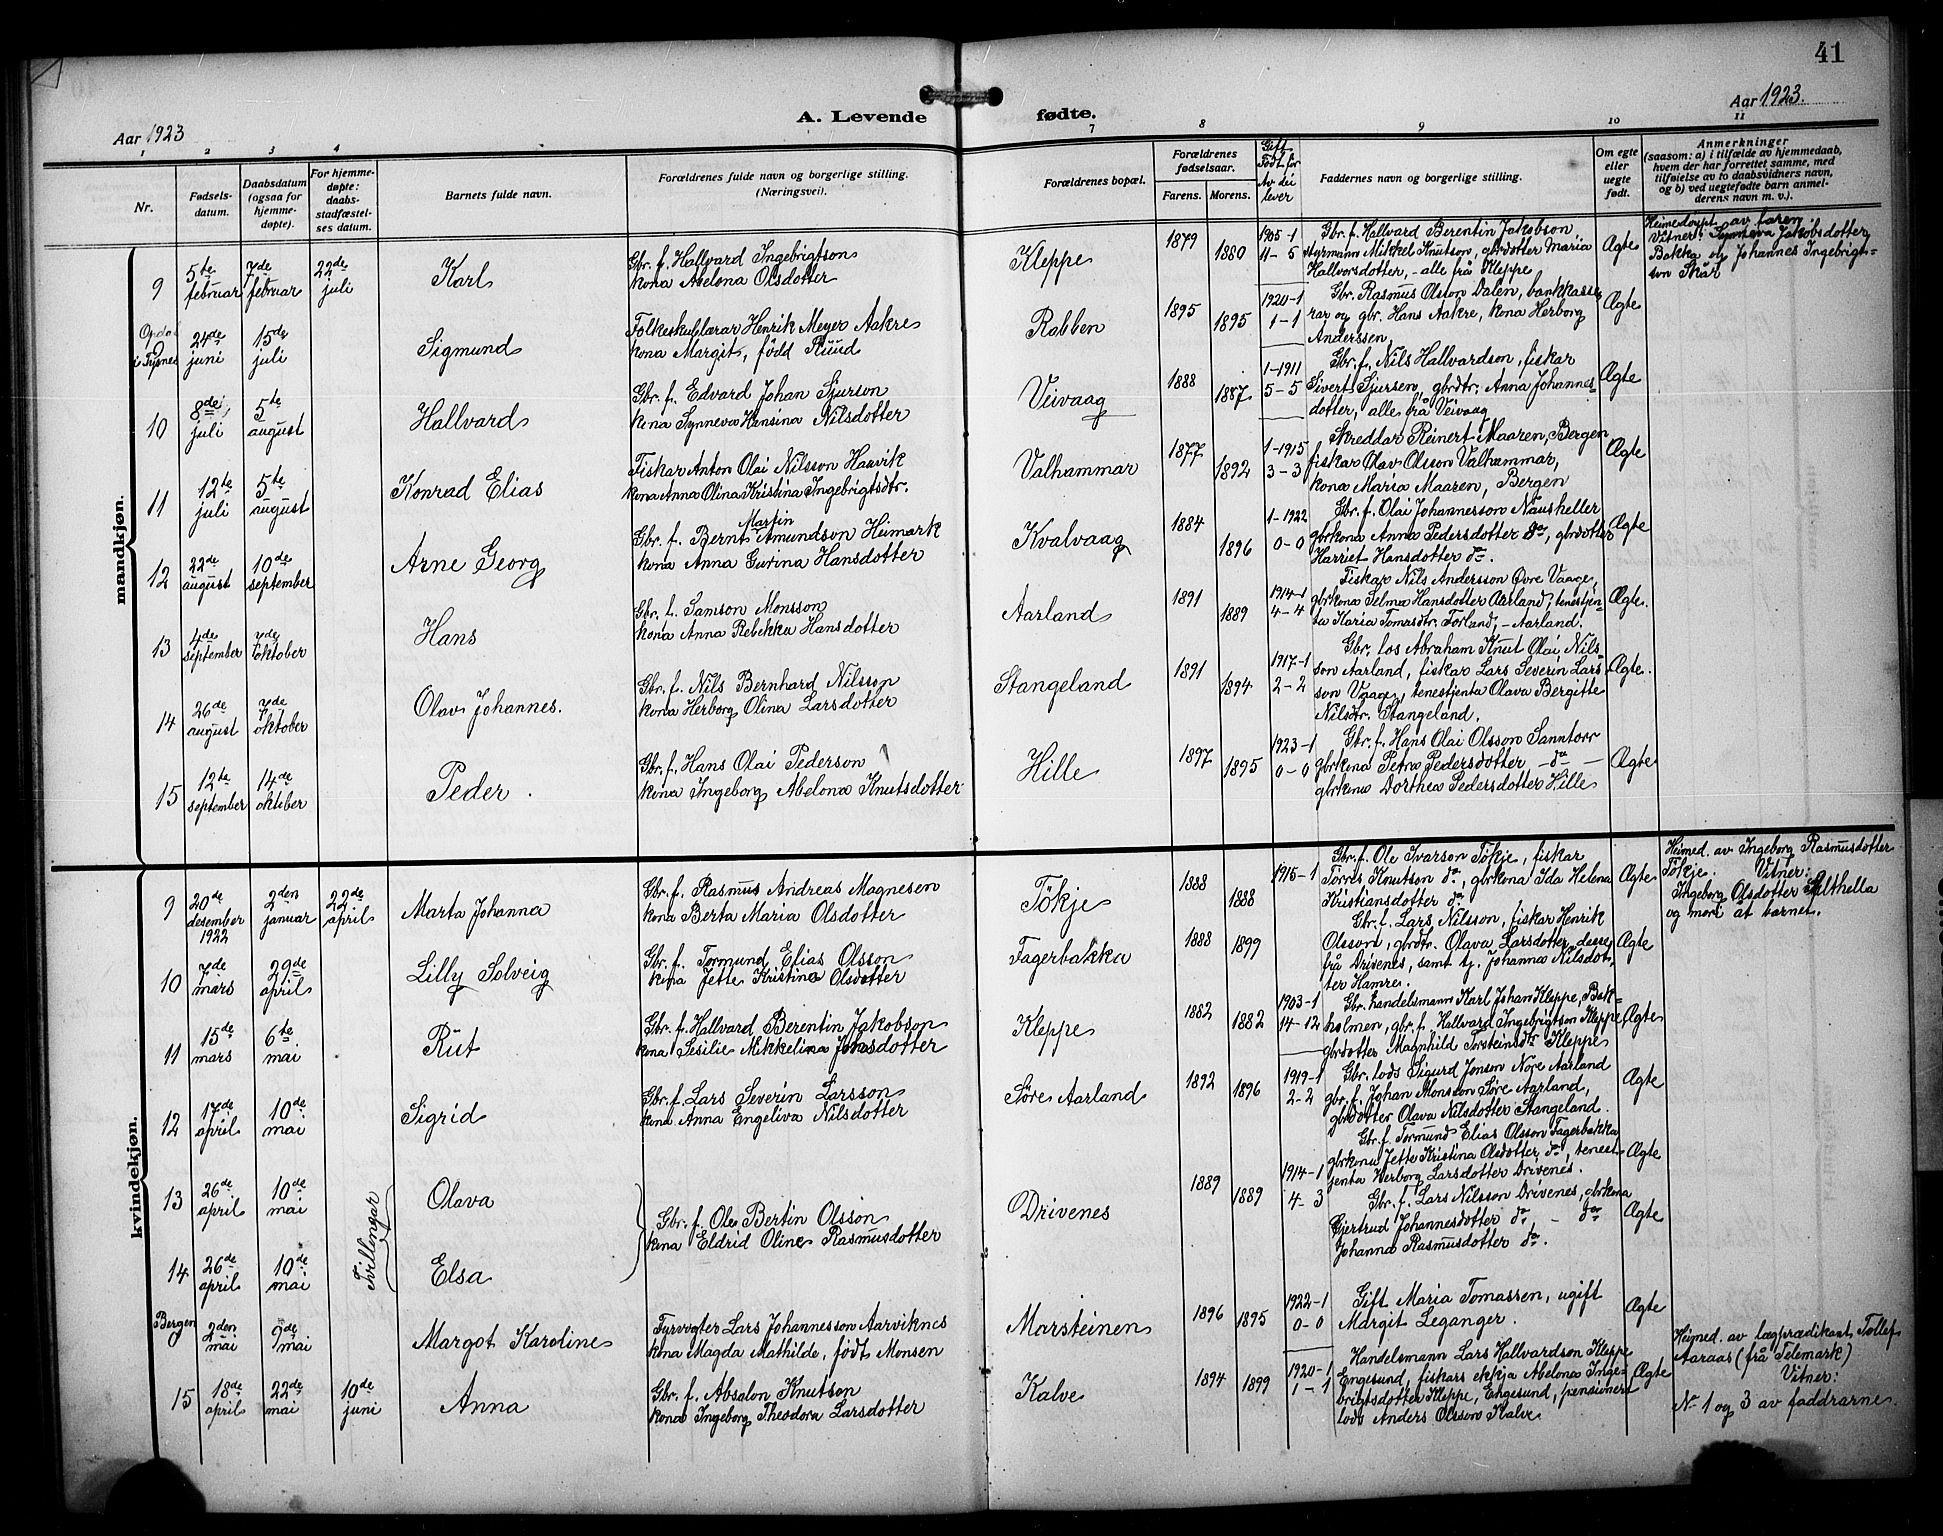 41
Aar 1923
A. Levende fødte.
Aar 1923.
1 2 3 4 7 8 9 10 11
Nr.
Fødsels-
datum.
Daabsdatum
(ogsaa for
hjemme-
døpte).
For hjemme-
døpte:
daabs-
stadfæstel-
ses datum.
Barnets fulde navn.
Forældrenes fulde navn og borgerlige stilling.
(Næringsvei).
Forældrenes bopæl.
Forældrenes
fødselsaar.
Farens. Morens.
Gift
Födt før
Av dei
lever
Faddernes navn og borgerlige stilling.
Om egte
eller
uegte
født.
Anmerkninger
(saasom: a) i tilfælde av hjemmedaab,
hvem der har forrettet samme, med
tilføielse av to daabsvidners navn,
og b) ved uegtefødte barn anmel-
derens navn m. v.).
mandkjøn.
9
5te
februar
7de
februar
22de
juli
Karl
Gbr. f. Hallvard Ingebrigtson
kona Abelona Olsdotter
Kleppe
1879
1880
1905-1
11-5
Gbr. f. Hallvard Berentin Jakobson,
styrmann Mikkel Knutson, gbrdotter Maria
Hallvorsdotter, - alle frå Kleppe
Ægte
Heimedøypt av faren
Vitner: Synneva Jakobsdotter
Bakka og Johannes Ingebrigt-
son Skår
9
i Tysnes
24de
juni
15de
juli
Sigmund
Folkeskulelærar Henrik Meyer Aakre
kona Margit, född Ruud
Rabben
1895
1895
1920-1
1-1
Gbr. Rasmus Olsson Dalen, bankkasse-
rar og gbr. Hans Aakre, kona Herborg
Anderssen,
Ægte
10
8de
juli
5te
august
Hallvard
Gbr. f. Edvard Johan Sjurson
kona Synneva Hansina Nilsdotter
Veivaag
1888
1887
1-1911
5-5
Gbr. f. Nils Hallvardson, fiskar
Sivert Sjursen, gbrdtr. Anna Johannes-
dotter, alle frå Veivaag
Ægte
11
12te
juli
5te
august
Konrad Elias
Fiskar Anton Olai Nilsson Haavik
kona Anna Olina Kristina Ingebrigtsdtr.
Valhammar
1877
1892
1-1915
3-3
Skreddar Reinert Maaren, Bergen
fiskar Olav Olsson Valhammar,
kona Maria Maaren, Bergen
Ægte
12
22de
august
10de
september
Arne Georg
Martin
Gbr. f. Bernt Amundson Heimark
kona Anna Gurina Hansdotter
Kvalvaag
1884
1896
1-1922
0-0
Gbr. f. Olai Johannesson Nausheller
gbrkona Anna Pedersdotter do, gbrdotter
Harriet Hansdotter do.
Ægte
13
4de
september
7de
oktober
Hans
Gbr. f. Samson Monsson
kona Anna Rebekka Hansdotter
Aarland
1891
1889
1914-1
4-4
Fiskar Nils Andersson Övre Vaage,
gbrkona Selma Hansdotter Aarland, tenestjen-
ta Karia Tomasdtr. Forland, - Aarland.
Ægte.
14
26de
august
7de
oktober
Olav Johannes.
Gbr. f. Nils Bernhard Nilsson
kona Herborg Olina Larsdotter
Stangeland
1891
1894
1917-1
2-2
Gbr. los Abraham Knut Olai Nils-
son Aarland, fiskar Lars Severin Lars-
son Vaage, tenestjenta Olava Bergitte
Nilsdtr. Stangeland.
Ægte.
15
12te
september
14de
oktober
Peder.
Gbr. f. Hans Olai Pederson
kona Ingeborg Abelona Knutsdotter
Hille
1897
1895
1923-1
0-0
Gbr. f. Hans Olai Olsson Sanntorv
gbrkona Petra Pedersdotter -do-
gbrkona Dorthea Pedersdotter Hille
Ægte
kvindekjøn.
9
20de
desember
1922
2den
januar
22de
april
Marta Johanna
Gbr. f. Rasmus Andreas Magnesen
kona Berta Maria Olsdotter
Tökje
1888
1888
1915-1
Gbr. f. Ole Ivarson Tökje, fiskar
Torres Knutson do, gbrkona Ida Helena
Kristiansdotter do.
Ægte
Heimed. av Ingeborg Rasmusdotter
Tökje. Vitner:
Ingeborg Olsdotter Salthella
og mori åt barnet.
10
7de
mars
29de
april
Lilly Solveig
Gbr. f. Tormund Elias Olsson
kona Jette Kristina Olsdotter
Fagerbakka
1888
1899
Gbr. f. Lars Nilsson, fiskar Henrik
Olsson, gbrdtr. Olava Larsdotter, desse
frå Drivenes, samt tj. Johanna Nilsdot-
ter Hamre.
Ægte
11
15de
mars
6te
mai
Rut
Gbr. f. Hallvard Berentin Jakobson
kona Sesilie Mikkelina Jonsdotter
Kleppe
1882
1882
1903-1
14-12
Gbr. handelsmann Karl Johan Kleppe, Bak-
holmen, gbr. f. Hallvard Ingebrigtson Kleppe,
gbrdotter Magnhild Torsteinsdtr Kleppe
Ægte
12
17de
april
10de
mai
Sigrid
Gbr. f. Lars Severin Larsson
kona Anna Engeliva Nilsdotter
Söre Aarland
1892
1896
1919-1
2-2
Gbr. lods Sigurd Jonson Nore Aarland
gbr. f. Johan Monsson Söre Aarland,
gbrdotter Olava Nilsdotter Stangeland.
Ægte
13
26de
april
10de
mai
Tvillingar
Olava
Gbr. f. Ole Bertin Olsson
kona Eldrid Oline Rasmusdotter
Drivenes
1889
1889
1914-1
4-3
Gbr. f. Tormund Elias Olsson Fagerbakka
gbrkona Jette Kristina Olsdotter, do, tenest-
jenta Herborg Larsdotter Drivenes.
Ægte
14
26de
april
10de
mai
Elsa
Gbr. f. Lars Nilsson Drivenes, gbrkona
Gjertrud Johannesdotter do - do
Johanna Rasmusdotter do.
Ægte
Bergen
2den
mai
9de
mai
Margot Karoline
Fyrvogter Lars Johannesson Aarviknes
kona Magda Mathilde, født Monsen
Marsteinen
1896
1895
1922-1
0-0
Gift Maria Tomassen, ugift
Margit Leganger.
Ægte
15
18de
april
22de
mai
10de
juni
Anna
Gbr. f. Absalon Knutson
kona Ingeborg Theodora Larsdotter
Kalve
1894
1899
1920-1
1-1
Handelsmann Lars Hallvardson Kleppe
Engesund, fiskars ekkja Abelona Inge-
brigtsdotter Kleppe, Engesund, pensionert
lods Anders Olsson Kalve
Ægte
Heimed. av lægprædikant Tollef
Aaraas (frå Telemark)
Vitner:
No 1 og 3 av faddrarne.